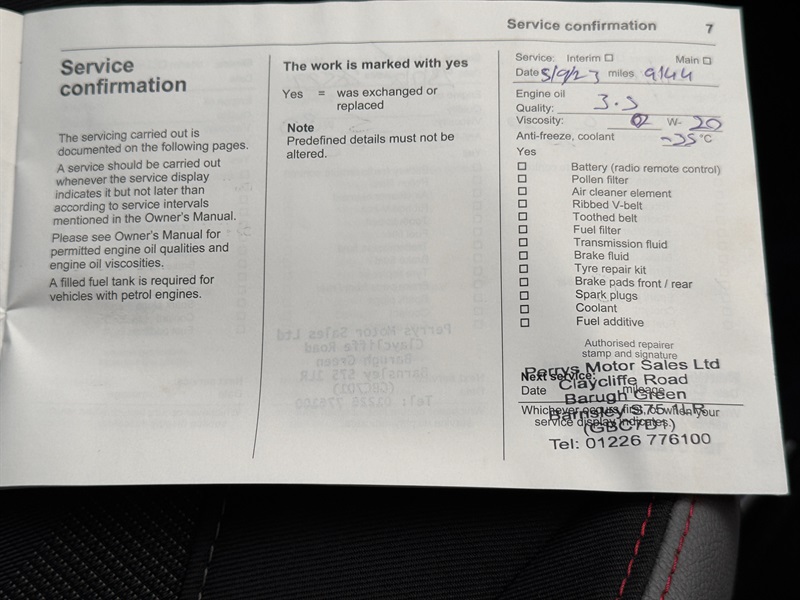 Service confirmation 7
Service
confirmation
The servicing carried out is
documented on the following pages.
A service should be carried out
whenever the service display
indicates it but not later than
according to service intervals
mentioned in the Owner's Manual.
Please see Owner's Manual for
permitted engine oil qualities and
engine oil viscosities.
A filled fuel tank is required for
vehicles with petrol engines.
The work is marked with yes
Yes = was exchanged or
replaced
Note
Predefined details must not be
altered.
Service: Interim Main
Date 5/9/23 miles 9144
Engine oil
Quality: 3.5
Viscosity: 0 W- 20
Anti-freeze, coolant -35 °C
Yes
Battery (radio remote control)
Pollen filter
Air cleaner element
Ribbed V-belt
Toothed belt
Fuel filter
Transmission fluid
Brake fluid
Tyre repair kit
Brake pads front / rear
Spark plugs
Coolant
Fuel additive
Authorised repairer
stamp and signature
Perrys Motor Sales Ltd
Next service:
Claycliffe Road
Date mileage
Barugh Green
Whichever occurs first, or when your
Barnsley S75 1LR
service display indicates.)
(GBC7D1)
Tel: 01226 776100